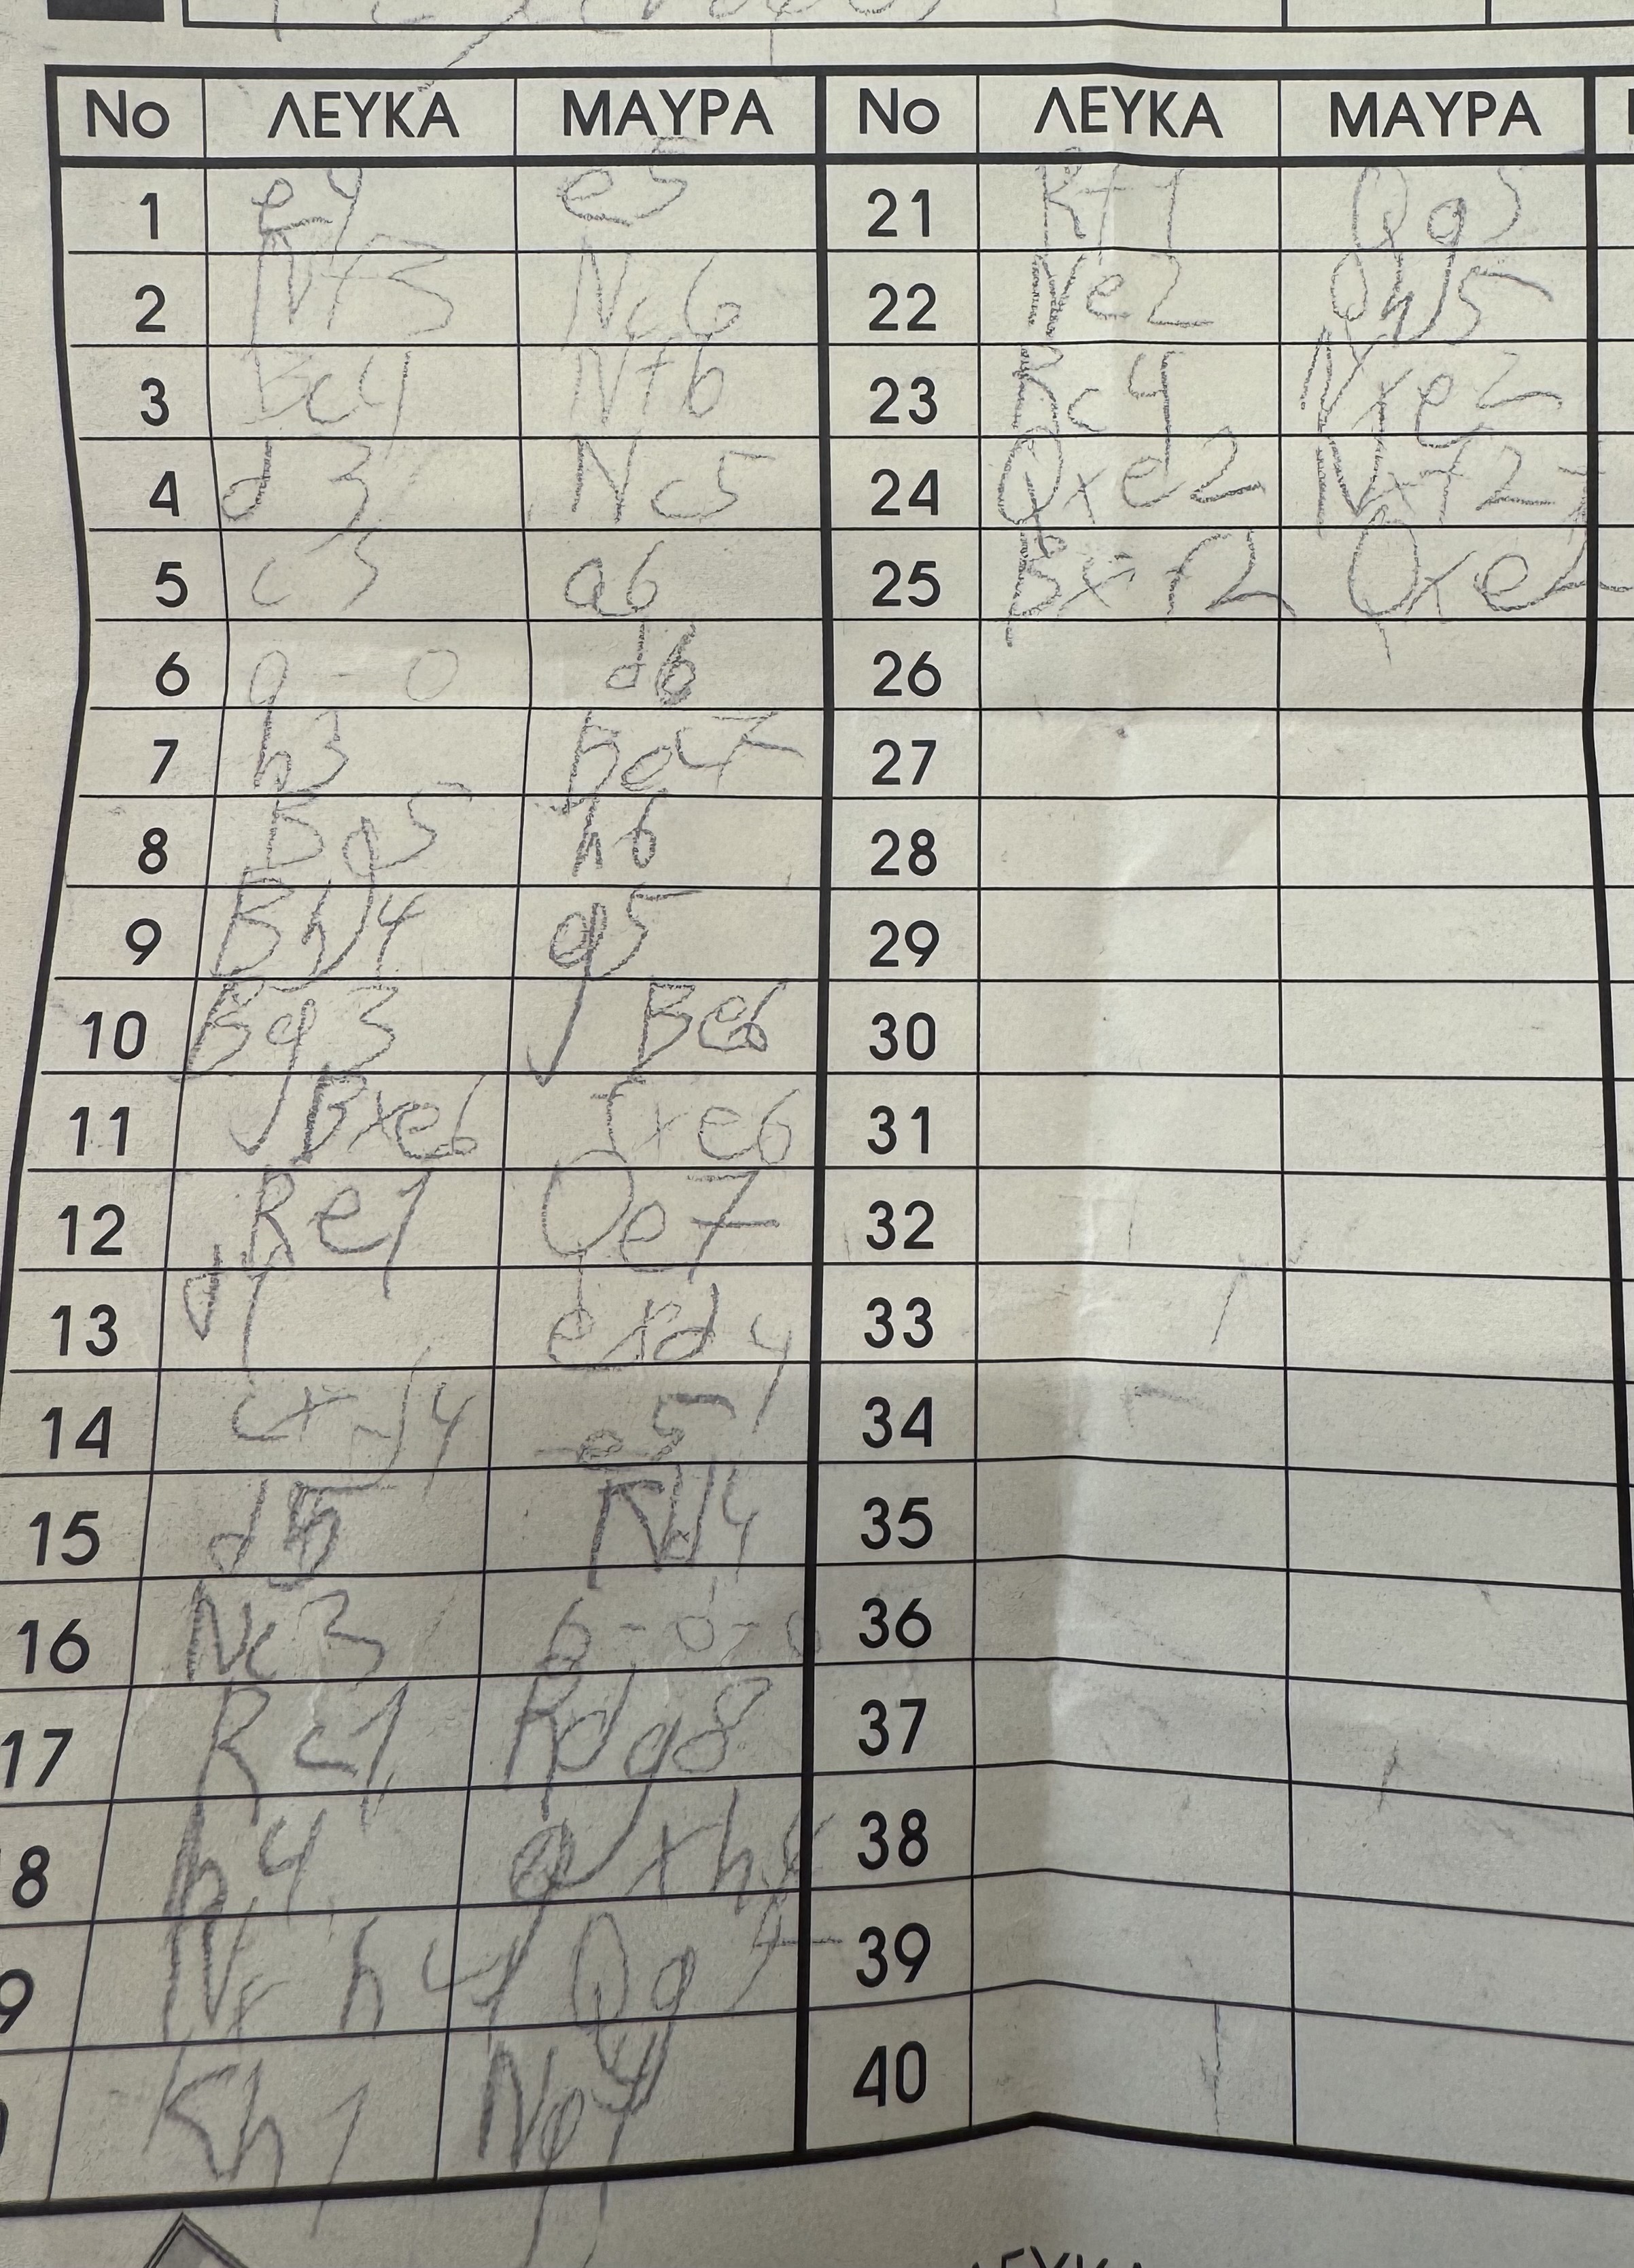 No ΛΕΥΚΑ ΜΑΥΡΑ No ΛΕΥΚΑ ΜΑΥΡΑ
1 e4 e5 21 Rf1 Qg5
2 Nf3 Nc6 22 Ne2 Qh5
3 Bc4 Nf6 23 Rc4 Nxe2
4 d3 Nc5 24 Qxe2 Nxf2+
5 c3 a6 25 Bxf2 Qxe2
6 0-0 d6 26
7 h3 Bd7 27
8 Bg5 h6 28
9 Bh4 g5 29
10 Bg3 Be6 30
11 Bxe6 fxe6 31
12 Re1 Qe7 32
13 d4 exd4 33
14 cxd4 e5 34
15 d5 Nd4 35
16 Nc3 0-0-0 36
17 Rc1 Rdg8 37
8 h4 gxh4 38
9 Nxh4 Qg7 39
Kh1 Ne4 40
ΛΕΥΚΑ